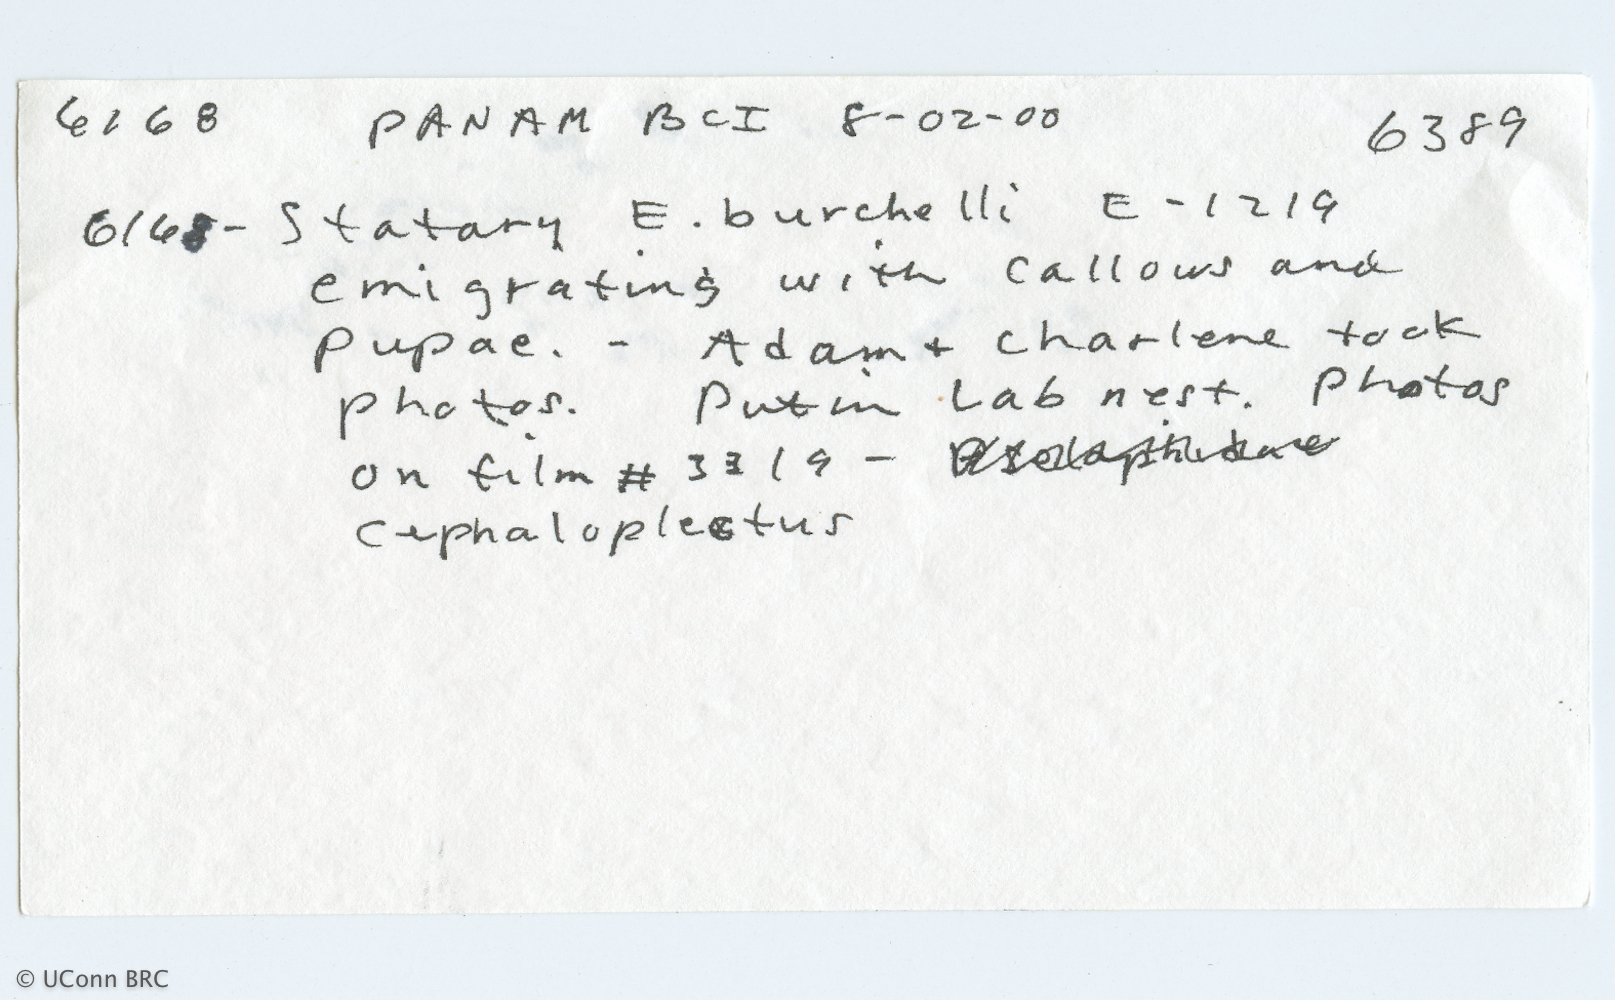 6168 PANAM BCI 8-02-00 6389
6168- Statary E. burchelli E-1219
emigrating with callows and
pupae. - Adam + Charlene took
photos. Put in Lab nest. Photos
on film # 3319 -
Cephaloplectus
© UConn BRC